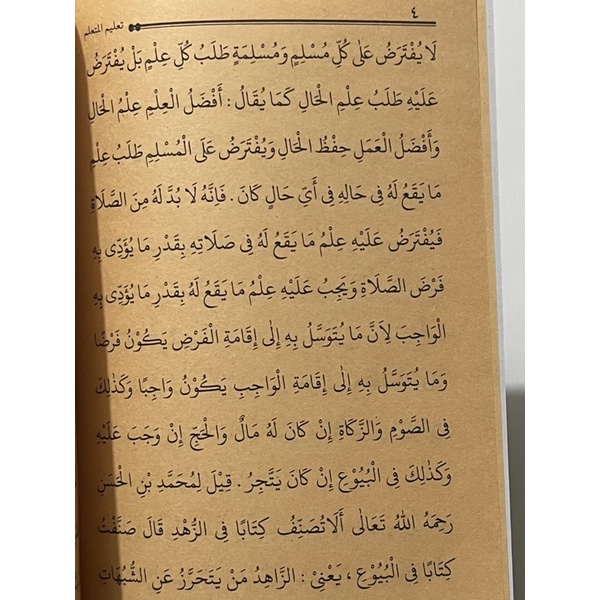 ٤ تعليم المتعلم
لَا يُفْتَرَضُ عَلَى كُلِّ مُسْلِمٍ وَمُسْلِمَةٍ طَلَبُ كُلِّ عِلْمٍ بَلْ يُفْتَرَضُ
عَلَيْهِ طَلَبُ عِلْمِ الْحَالِ كَمَا يُقَالُ : أَفْضَلُ الْعِلْمِ عِلْمُ الْحَالِ
وَأَفْضَلُ الْعَمَلِ حِفْظُ الْحَالِ وَيُفْتَرَضُ عَلَى الْمُسْلِمِ طَلَبُ عِلْمِ
مَا يَقَعُ لَهُ فِى حَالِهِ فِى أَىِّ حَالٍ كَانَ . فَإِنَّهُ لَا بُدَّ لَهُ مِنَ الصَّلَاةِ
فَيُفْتَرَضُ عَلَيْهِ عِلْمُ مَا يَقَعُ لَهُ فِى صَلَاتِهِ بِقَدْرِ مَا يُؤَدِّى بِهِ
فَرْضَ الصَّلَاةِ وَيَجِبُ عَلَيْهِ عِلْمُ مَا يَقَعُ لَهُ بِقَدْرِ مَا يُؤَدِّى بِهِ
الْوَاجِبَ لِاَنَّ مَا يُتَوَسَّلُ بِهِ إِلَى إِقَامَةِ الْفَرْضِ يَكُوْنُ فَرْضًا
وَمَا يُتَوَسَّلُ بِهِ إِلَى إِقَامَةِ الْوَاجِبِ يَكُوْنُ وَاجِبًا وَكَذٰلِكَ
فِى الصَّوْمِ وَالزَّكَاةِ إِنْ كَانَ لَهُ مَالٌ وَالْحَجِّ إِنْ وَجَبَ عَلَيْهِ
وَكَذٰلِكَ فِى الْبُيُوْعِ إِنْ كَانَ يَتَّجِرُ . قِيْلَ لِمُحَمَّدِ بْنِ الْحَسَنِ
رَحِمَهُ اللهُ تَعَالَى أَلَا تُصَنِّفُ كِتَابًا فِى الزُّهْدِ قَالَ صَنَّفْتُ
كِتَابًا فِى الْبُيُوْعِ ، يَعْنِىْ : الزَّاهِدُ مَنْ يَتَحَرَّزُ عَنِ الشُّبُهَاتِ